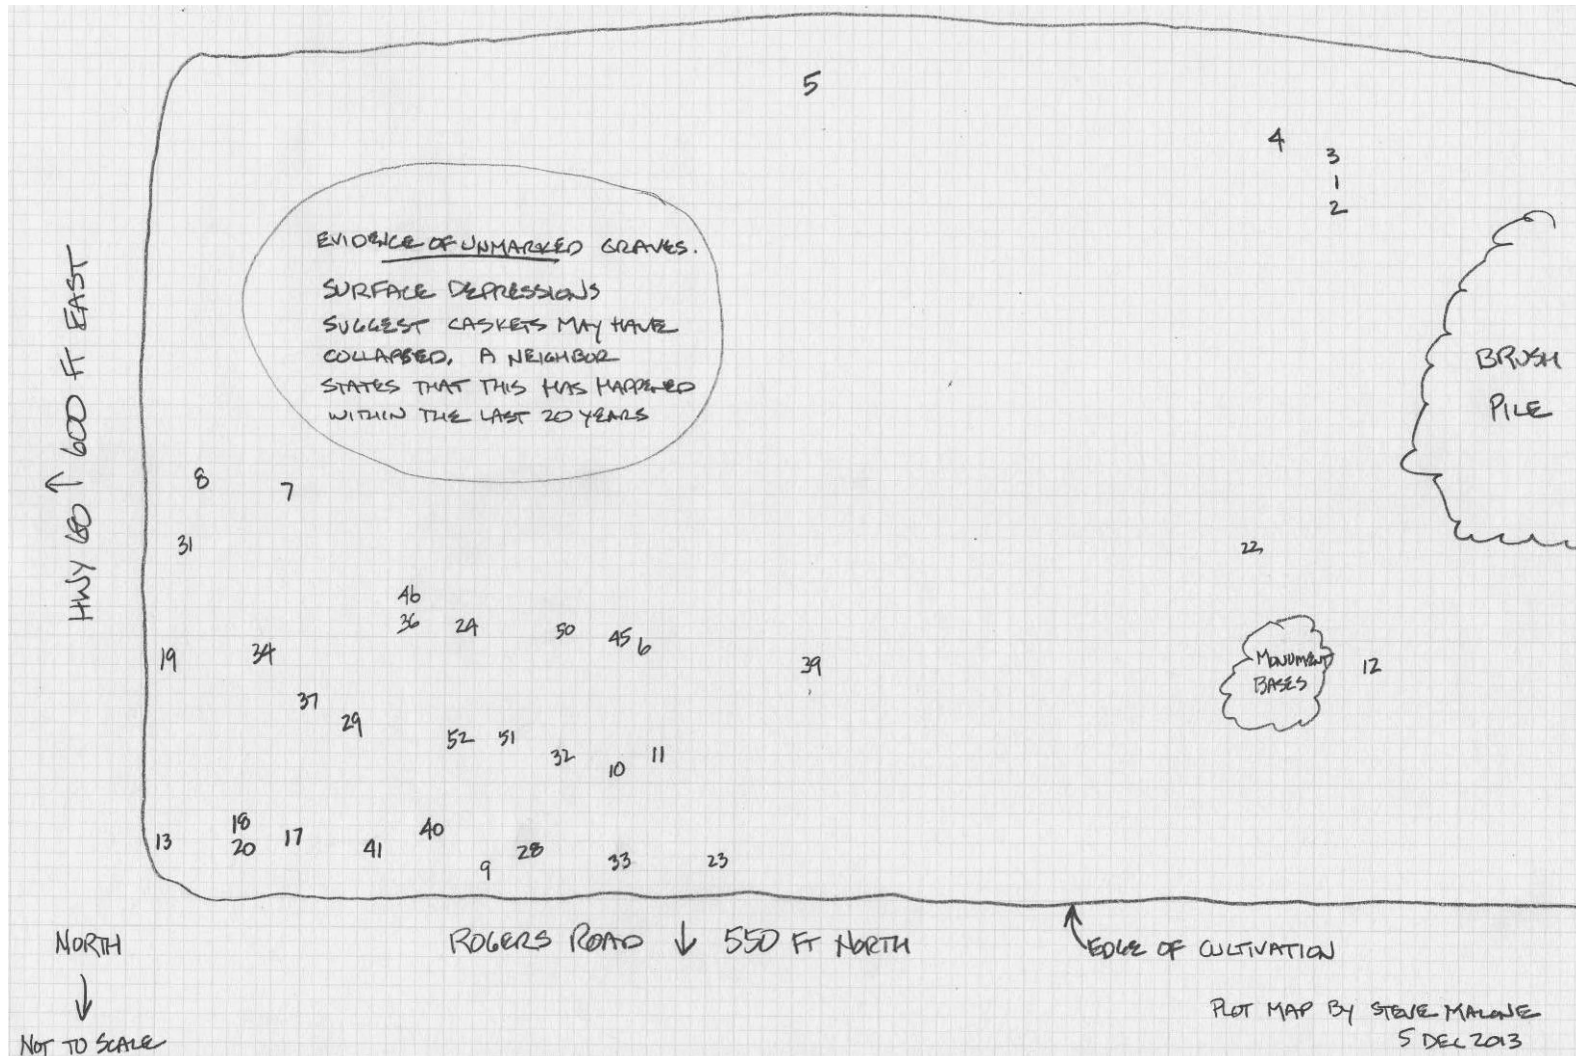 5
4
3
1
2
EVIDENCE OF UNMARKED GRAVES.
SURFACE DEPRESSIONS
SUGGEST CASKETS MAY HAVE
COLLAPSED. A NEIGHBOR
STATES THAT THIS HAS HAPPENED
WITHIN THE LAST 20 YEARS
BRUSH
PILE
HWY 60 ↑ 600 FT EAST
8
7
31
22
46
36
24
50
45
6
19
34
39
MONUMENT
BASES
12
37
29
52
51
32
10
11
13
18
20
17
41
40
9
28
33
23
NORTH
↓
NOT TO SCALE
ROGERS ROAD ↓ 550 FT NORTH
EDGE OF CULTIVATION
PLOT MAP BY STEVE MALONE
5 DEC 2013